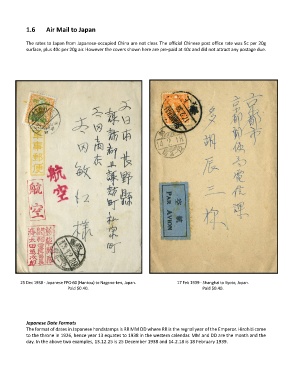 1.6 Air Mail to Japan
The rates to Japan from Japanese-occupied China are not clear. The official Chinese post office rate was 5c per 20g
surface, plus 40c per 20g air. However the covers shown here are pre-paid at 40c and did not attract any postage due.
大日本長野縣
諏訪郡上諏訪町
太田商店
太田敏
様
軍事郵便
航空
航空
京都市
京都郵便局電信課
多胡辰三様
航空
PAR AVION
25 Dec 1938 - Japanese FPO
to Nagano-ken, Japan.
Paid $0.40.
17 Feb 1939 - Shanghai to Kyoto, Japan.
Paid $0.40.
Japanese Date Formats
The format of dates in Japanese handstamps is RR MM DD where RR is the regnal year of the Emperor. Hirohito came
to the throne in 1926, hence year 13 equates to 1938 in the western calendar. MM and DD are the month and the
day. In the above two examples, 13.12.25 is 25 December 1938 and 14.2.18 is 18 February 1939.